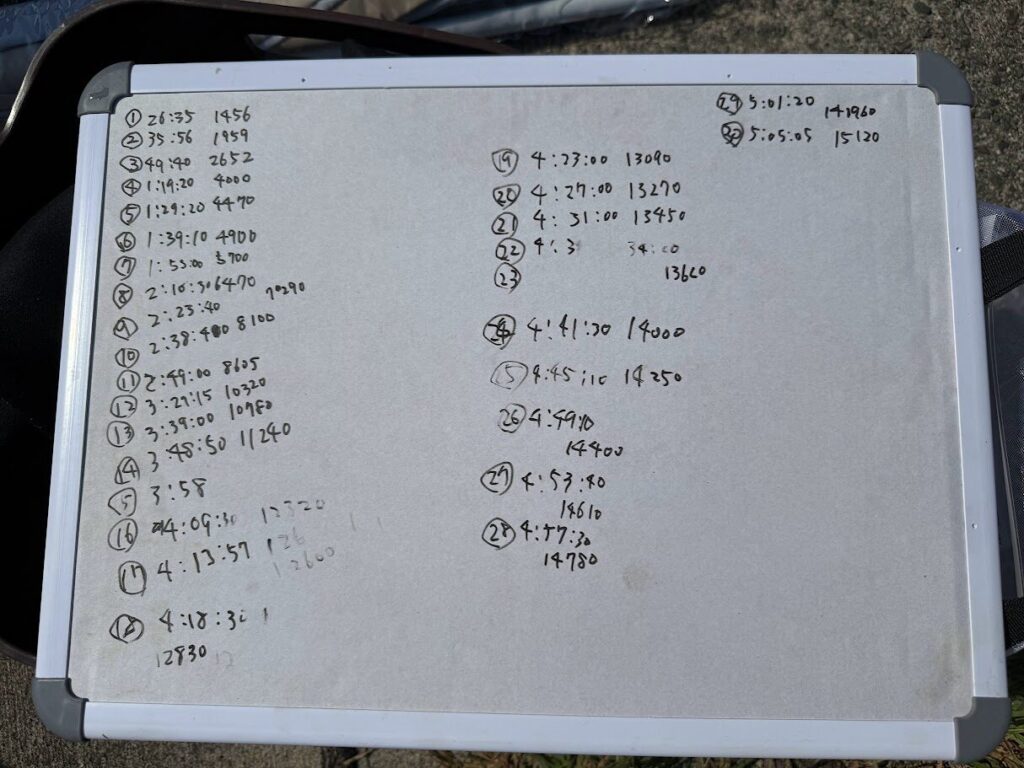 ① 26:35 1456
② 35:56 1959
③ 49:40 2652
④ 1:19:20 4000
⑤ 1:29:20 4470
⑥ 1:39:10 4900
⑦ 1:53:00 5700
⑧ 2:10:30 6470
⑨ 2:23:40 70290
⑩ 2:38:40 8100
⑪ 2:49:00 8605
⑫ 3:27:15 10320
⑬ 3:39:00 10780
⑭ 3:48:50 11240
⑮ 3:58
⑯ 4:09:30 12320
⑰ 4:13:57 126
12600
⑱ 4:18:30
12830 12
⑲ 4:23:00 13090
⑳ 4:27:00 13270
㉑ 4:31:00 13450
㉒ 4:3 34:00
㉓ 13620
㉔ 4:41:30 14000
⑤ 4:45:10 14250
㉖ 4:49:10
14400
㉗ 4:53:40
14610
㉘ 4:57:30
14780
㉙ 5:01:20 141960
㉚ 5:05:05 15120